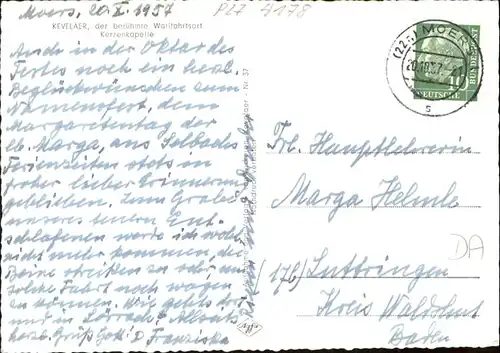 Moers, 20.X.1957
PLZ 4178
KEVELAER, der berühmte Wallfahrtsort
Kerzenkapelle
Auch in der Oktav des
Festes noch ein herzl.
Beglückwünschen zum
Namensfest, dem
Margaretentag der
lb. Marga, aus Selbachs
Ferienzeiten stets in
froher lieber Erinnerung
geblieben. Zum Grabe
unseres teuren Ent-
schlafenen werde ich wohl
nicht mehr kommen, die
Beine streiken zu sehr, um
solche Fahrt noch wagen
zu können. Wie geht's dort
und in Lörrach? Allseits
herzl. Grüß Gott! D. Franziska
(22a) MOERS
20.10.57
s
10
DEUTSCHE
BUNDESPOST
Nr. 37
Frl. Hauptlehrerin
Marga Helmle
(17b) Luttringen
Kreis Waldshut
Baden
DA